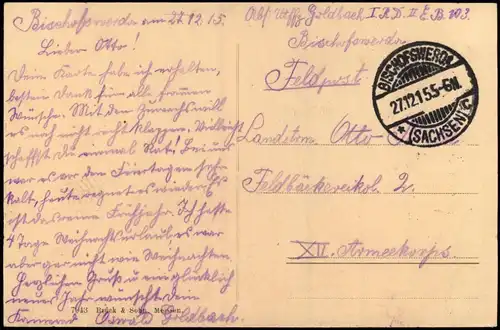 Bischofswerda am 27.12.15.
Lieber Otto!
Deine Karte habe ich erhalten,
besten Dank für alle frommen
Wünsche. Mit dem Zuwachs will
es noch nicht recht klappen. Vielleicht
schaffst du einmal Rat! Bei uns
war es vor den Feiertagen sehr
kalt, heute regnet es wieder. Es
ist das reine Frühjahr. Ich hatte
4 Tage Weihnachtsurlaub, es war
aber gar nicht wie Weihnachten.
Herzlichen Gruß u. ein glücklich
neues Jahr wünscht dein
Oswald Goldbach.
7943 Brück & Sohn, Meissen.
Abs. Goldbach I.R.D. II E.B. 103.
Bischofswerda
Feldpost.
BISCHOFSWERDA
27.12.15.5-6N.
* (SACHSEN) C
Landstm. Otto
Feldbäckereikol. 2.
XII. Armeekorps.